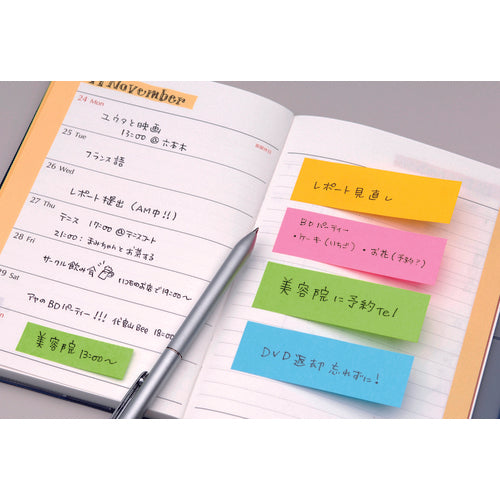 11 November
24 Mon
ユウタと映画
13:00 @ 六本木
25 Tue
フランス語
26 Wed
レポート提出 (AM中!!)
27 Thu
テニス 17:00 @テニスコート
21:00: まみちゃんとお茶する
28 Fri
サークル飲み会 いつものお店で19:00〜
29 Sat
アヤのBDパーティー!!! 代官山Bee 18:00
美容院 13:00〜
レポート見直し
BDパーティー
・ケーキ(いちご) ・お花(予約?)
美容院に予約Tel
DVD返却忘れずに!